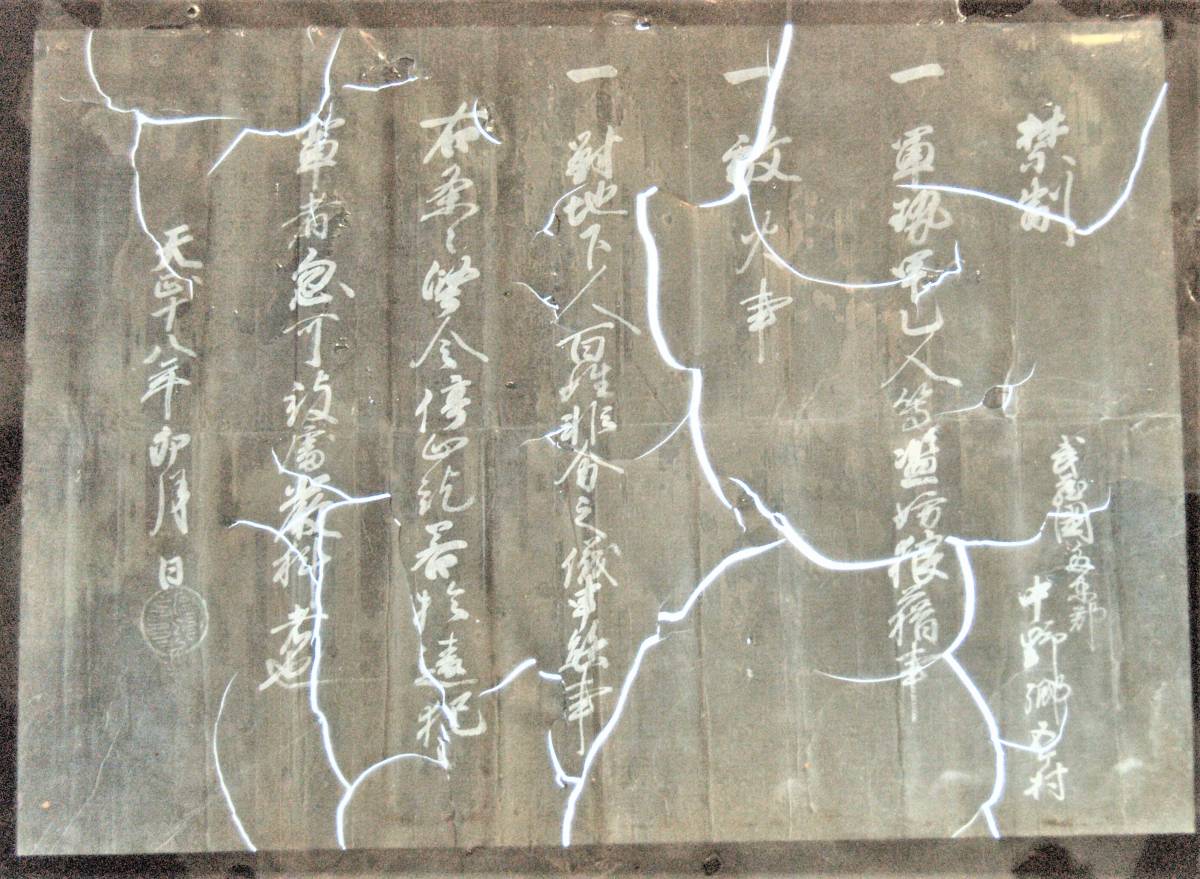 禁制
武蔵国多東郡
中野郷五ヶ村
一 軍勢甲乙人等濫妨狼藉事
一 放火事
一 対地下人百姓非分之儀申懸事
右条々堅令停止訖若於違犯之
輩者忽可被処厳科者也
天正十八年卯月 日